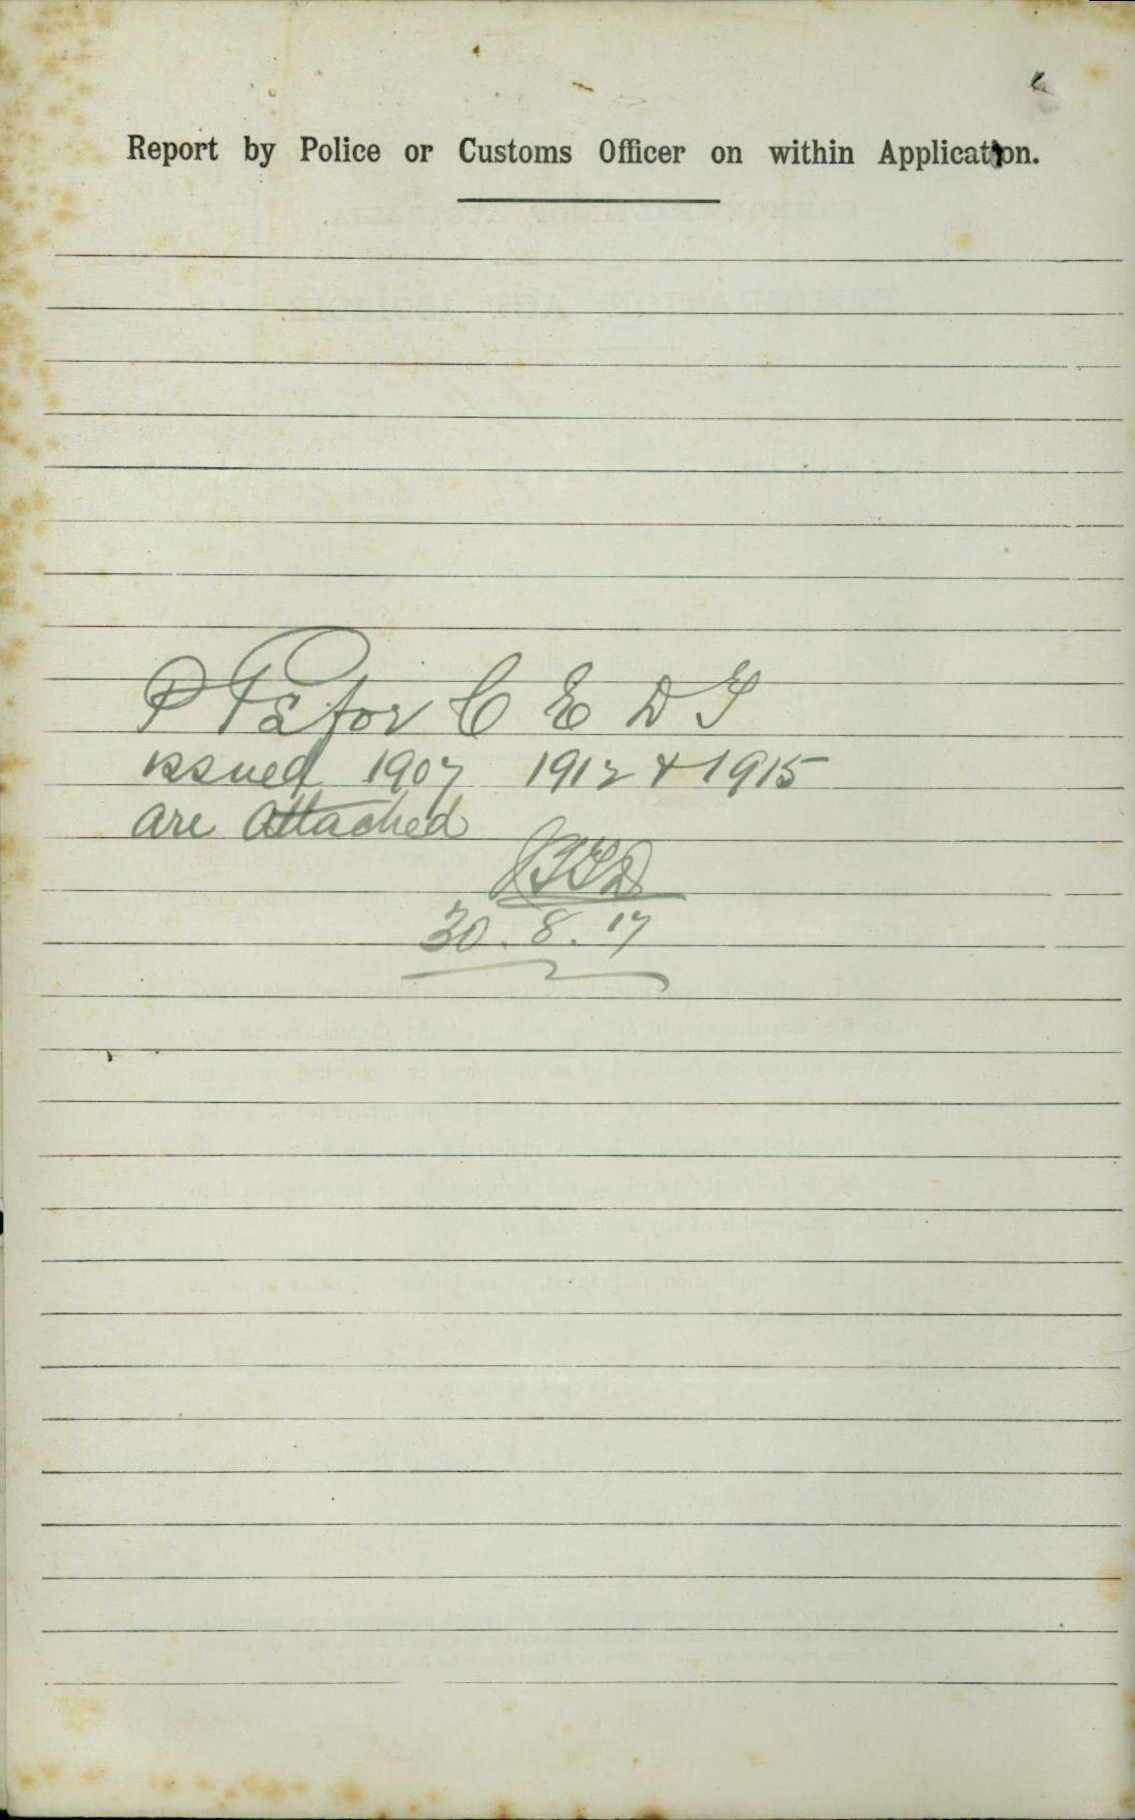 Report by Police or Customs Officer on within Application.
P Ps for C E D T
issued 1907 1912 & 1915
are attached
30.8.17